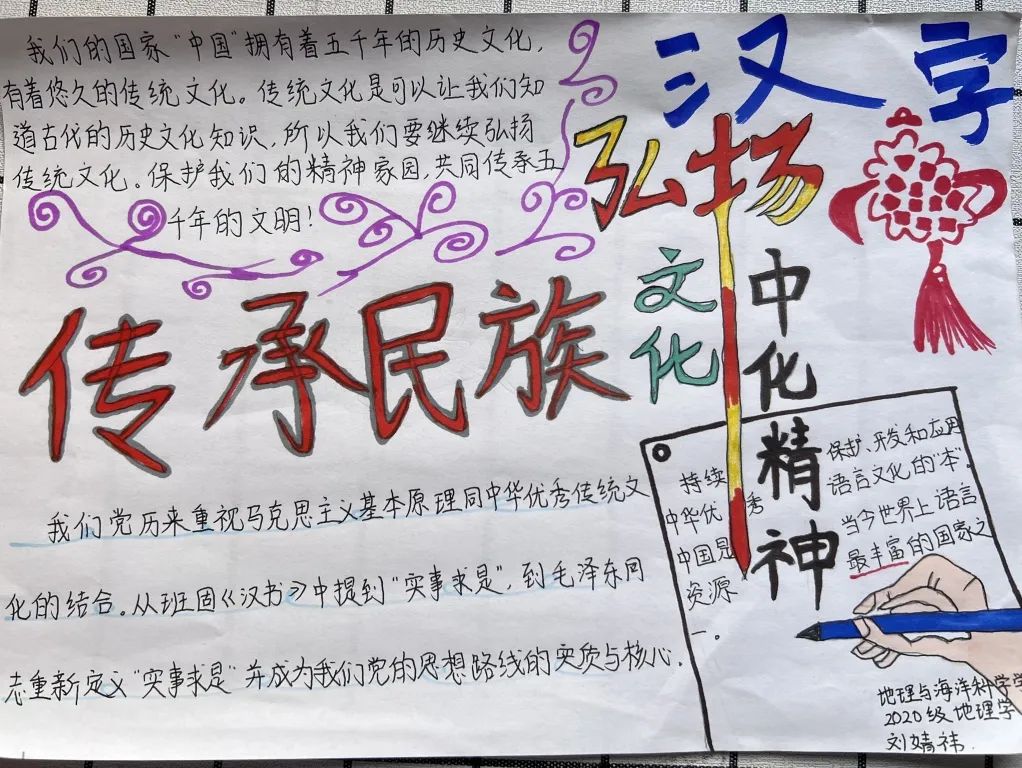 我们的国家“中国”拥有着五千年的历史文化，
有着悠久的传统文化。传统文化是可以让我们知
道古代的历史文化知识，所以我们要继续弘扬
传统文化。保护我们的精神家园，共同传承五
千年的文明！
汉字
弘扬
文化
中化精神
传承民族
我们党历来重视马克思主义基本原理同中华优秀传统文
化的结合。从班固《汉书》中提到“实事求是”，到毛泽东同
志重新定义“实事求是”并成为我们党的思想路线的实质与核心.
持续 保护、开发和应用
中华优秀 语言文化的“本”.
中国是 当今世界上语言
资源 最丰富的国家之
一。
地理与海洋科学学
2020级地理学
刘婧祎